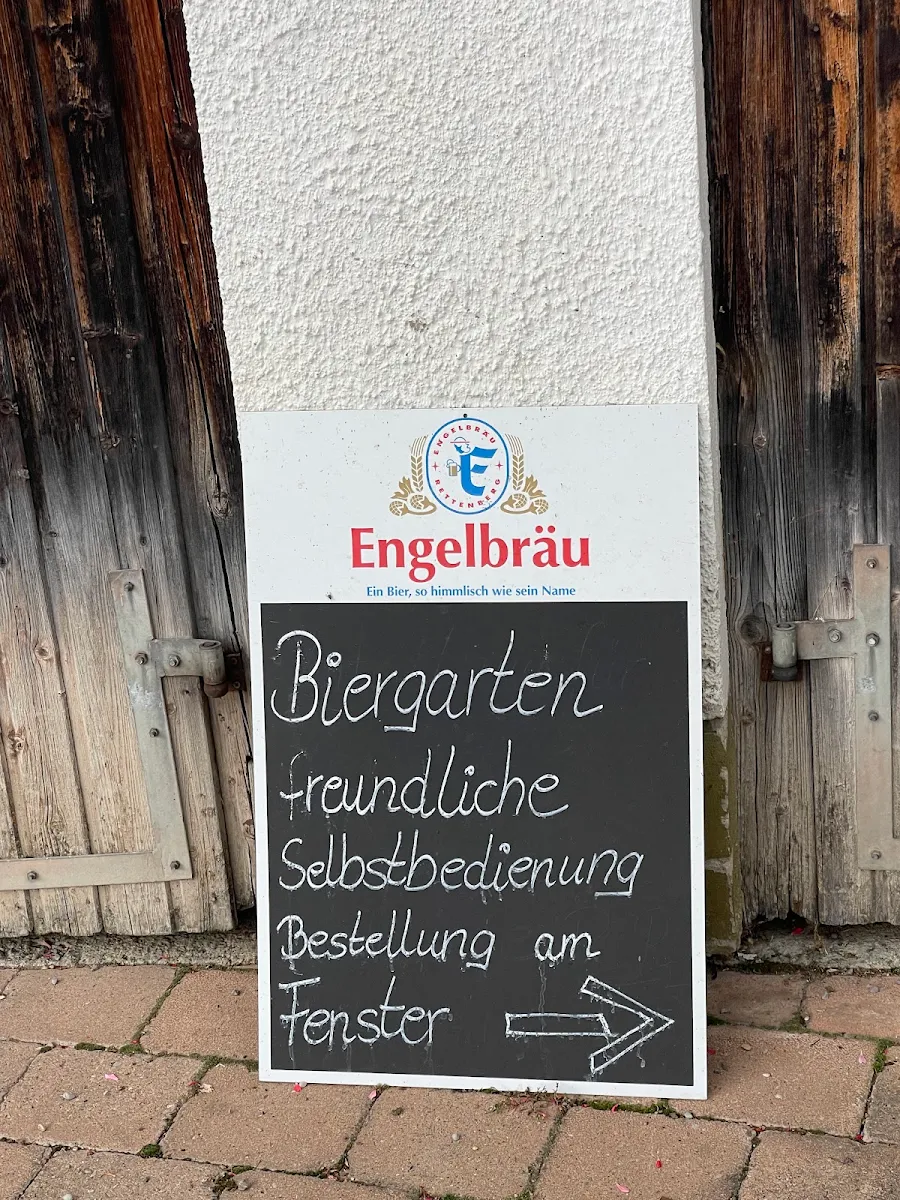 ENGELBRÄU
E
RETTENBERG
Engelbräu
Ein Bier, so himmlisch wie sein Name
Biergarten
freundliche
Selbstbedienung
Bestellung am
Fenster